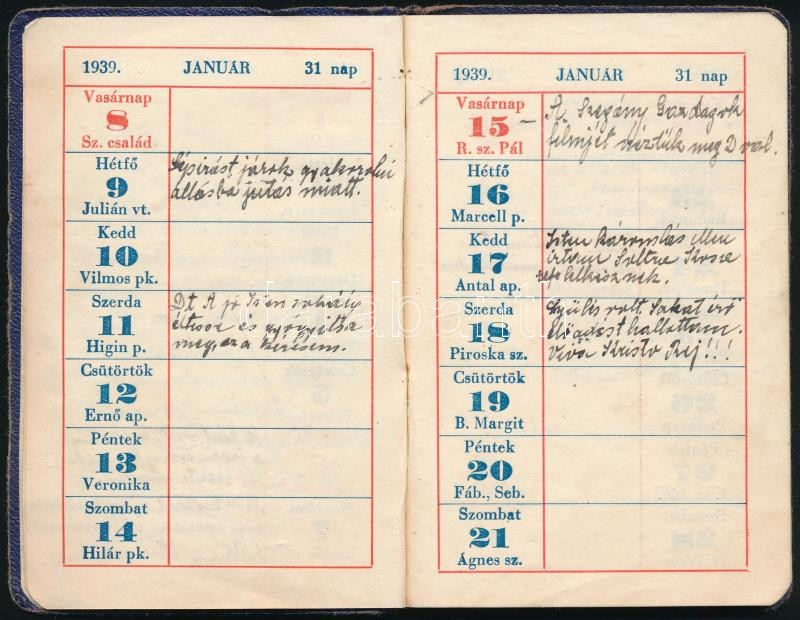 1939. JANUÁR 31 nap
Vasárnap
8
Sz. család
Hétfő
9
Julián vt.
Gépirást járok gyakorolni
állásba jutás miatt.
Kedd
10
Vilmos pk.
Szerda
11
Higin p.
Dt A jó Isten sokáig
éltesse és gyógyitsa
meg ez a kérésem.
Csütörtök
12
Ernő ap.
Péntek
13
Veronika
Szombat
14
Hilár pk.
1939. JANUÁR 31 nap
Vasárnap
15
R. sz. Pál
– A Szegény Gazdagok
filmjét néztük meg D val.
Hétfő
16
Marcell p.
Kedd
17
Antal ap.
Isten káromlás ellen
irtam
Szerda
18
Piroska sz.
Gyülés volt. Sokat érő
előadást hallottam.
Vivá Kristo Rej!!!
Csütörtök
19
B. Margit
Péntek
20
Fáb., Seb.
Szombat
21
Ágnes sz.
darabanth